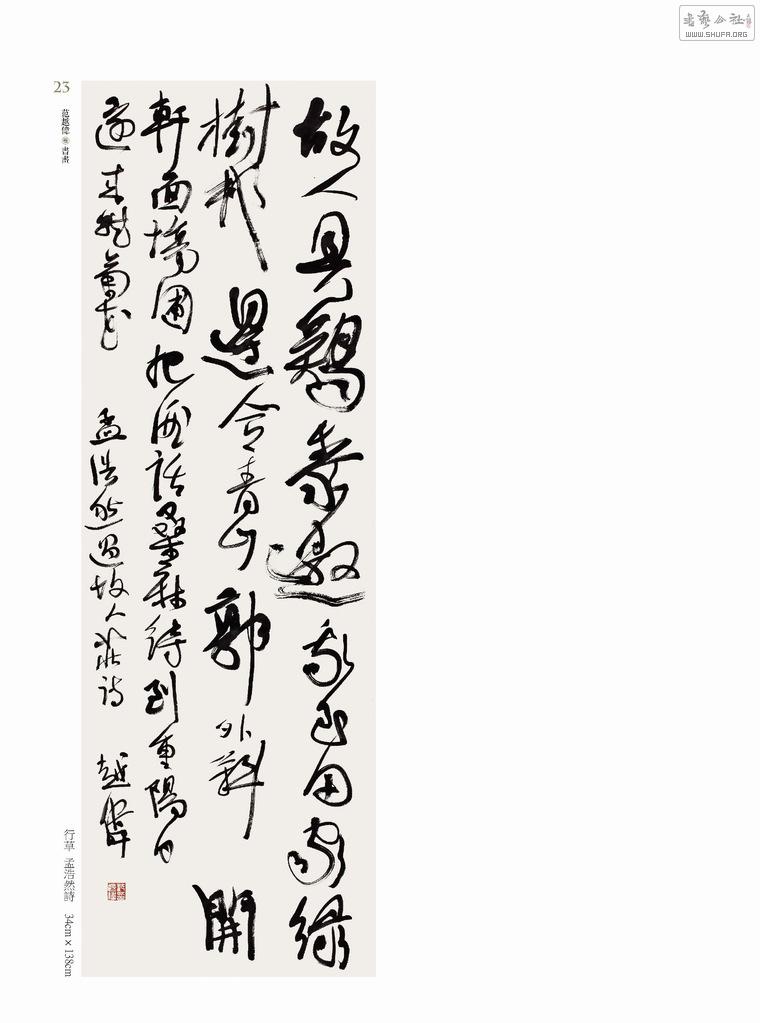 書藝公社
WWW.SHUFA.ORG
23
范越偉 書畫
故人具鷄黍邀我至田家緑
樹村邊合青山郭外斜開
軒面場圃把酒話桑麻待到重陽日
還來就菊花 孟浩然過故人莊詩 越偉
行草 孟浩然詩 34cm×138cm